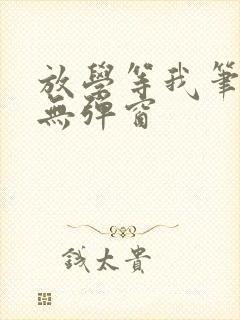 放學等我筆
無彈窗
錢太貴